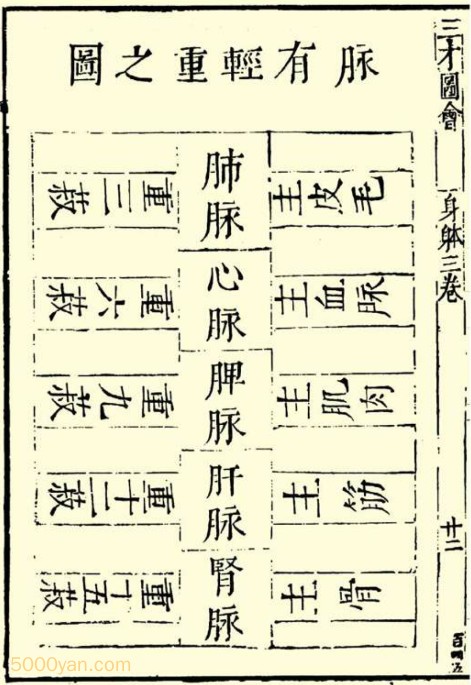 三才圖會
身躰三卷
廿二
脉有輕重之圖
主皮毛
肺脉
重三菽
主血脉
心脉
重六菽
主肌肉
脾脉
重九菽
主筋
肝脉
重十二菽
主骨
腎脉
重十五菽
5000yan.com